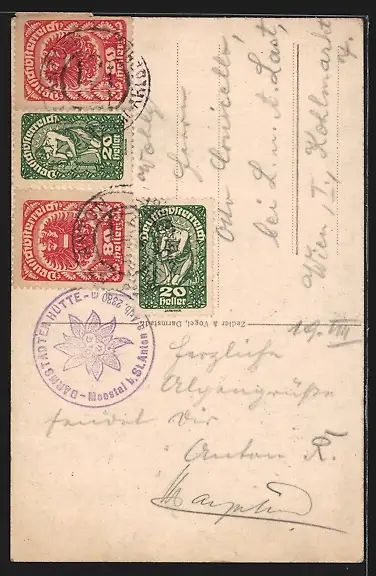 Deutschösterreich
80
Heller
Deutschösterreich
20
Heller
Deutschösterreich
80
Heller
Deutschösterreich
20
Heller
DARMSTÄDTER HÜTTE
Moostal b. St. Anton
Zedler & Vogel, Darmstadt
Herrn
Otto
bei L. u. A. Last,
Wien, I., Kohlmarkt
7.
19. VIII
Herzliche
Alpengrüße
sendet Dir
Anton R.